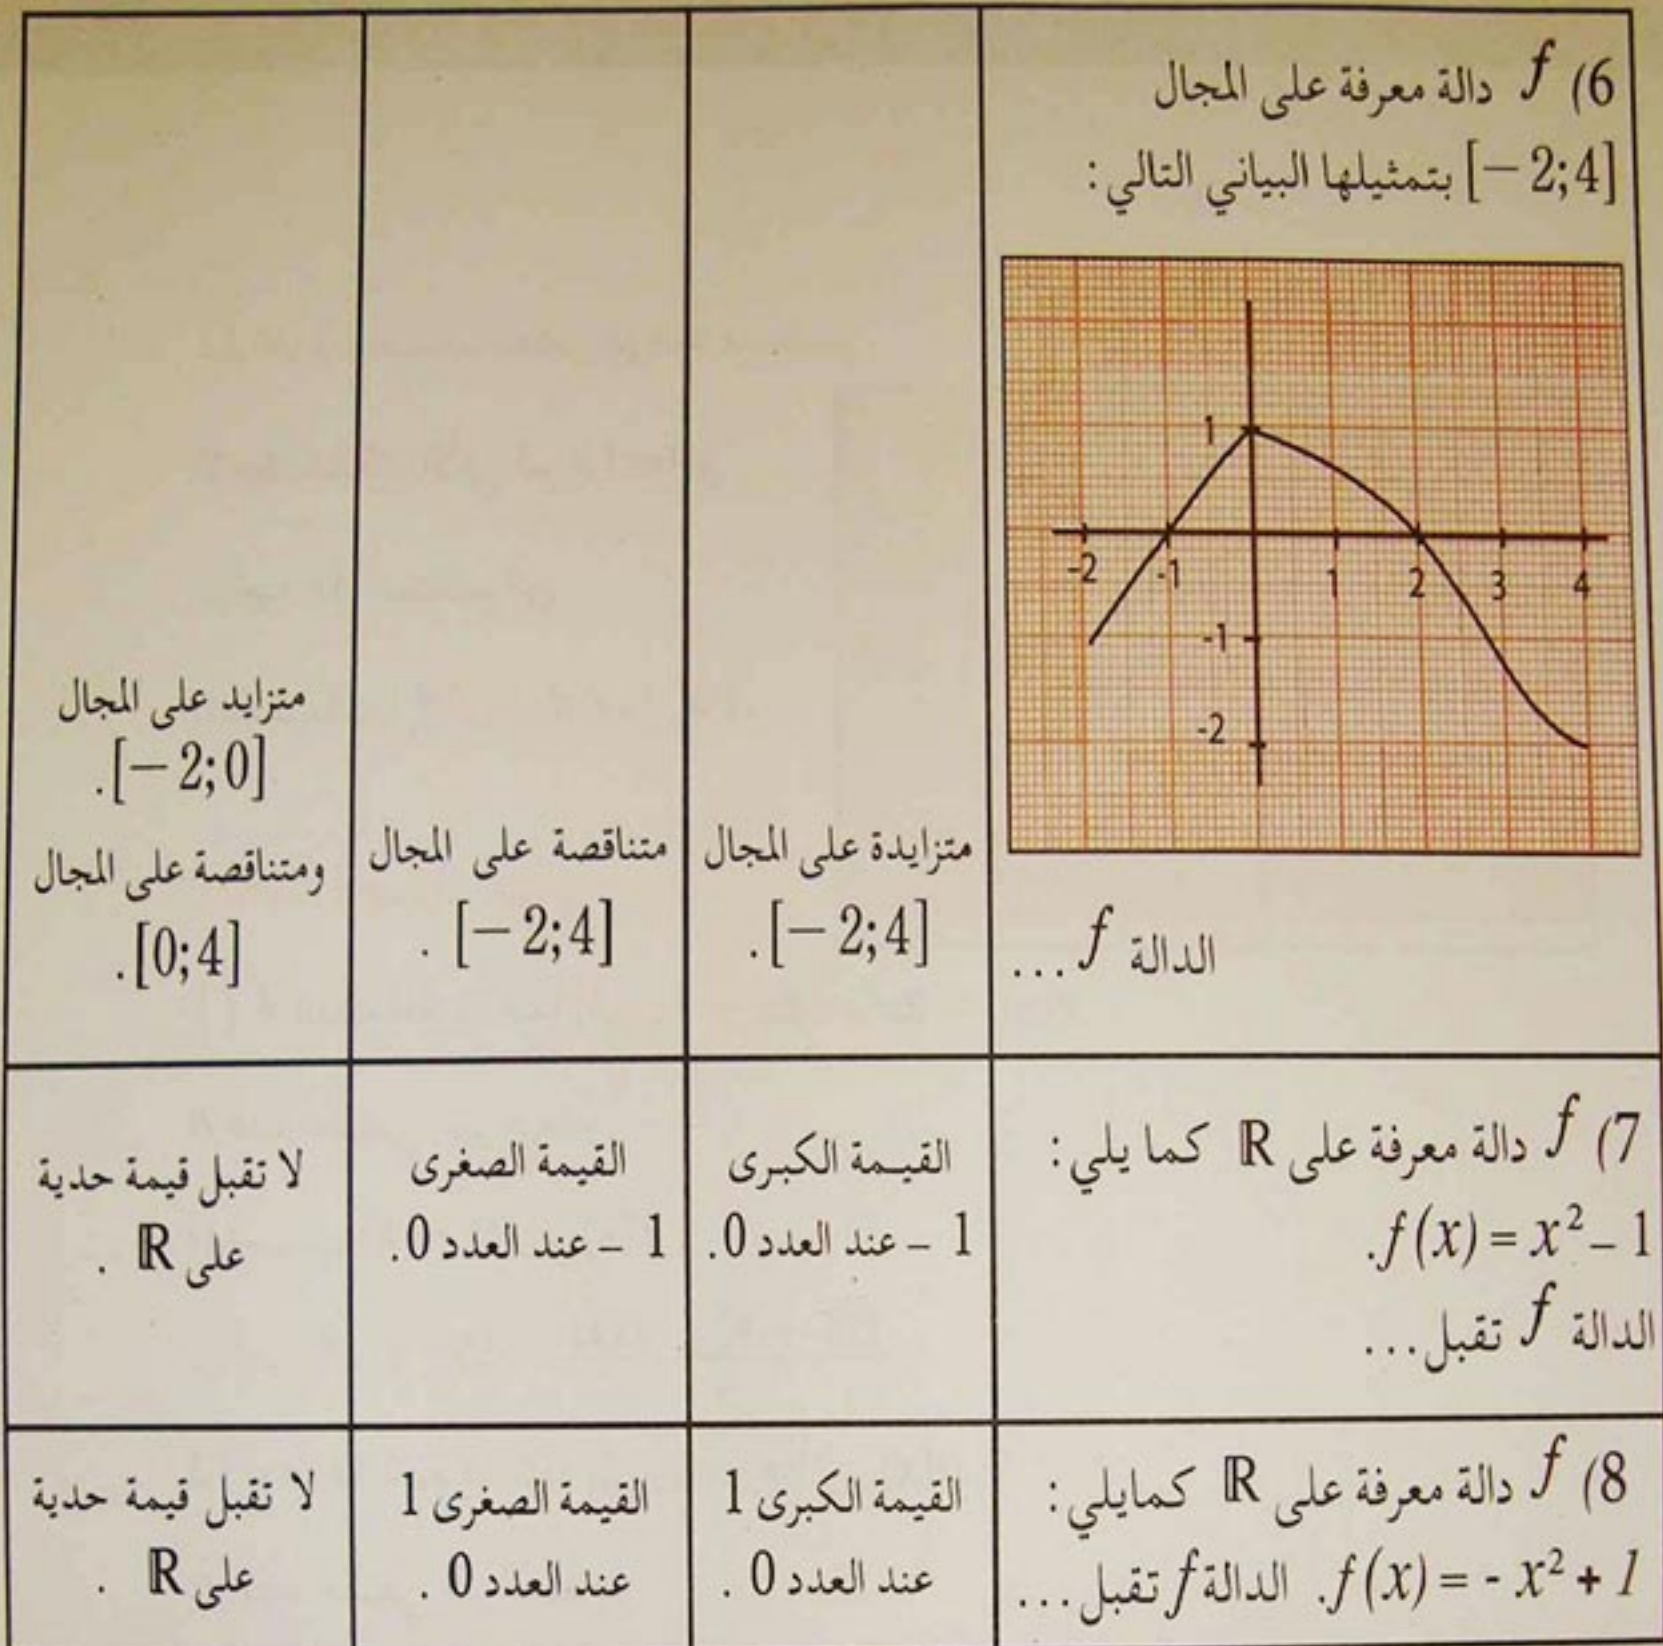 6) f دالة معرفة على المجال
[−2;4] بتمثيلها البياني التالي :
1
-2 -1 1 2 3 4
-1
-2
الدالة f ...
متزايدة على المجال
[−2;4].
متناقصة على المجال
[−2;4] .
متزايد على المجال
[−2;0].
ومتناقصة على المجال
[0;4].
7) f دالة معرفة على ℝ كما يلي :
f(x) = x² – 1.
الدالة f تقبل...
القيمة الكبرى
1 – عند العدد 0.
القيمة الصغرى
1 – عند العدد 0.
لا تقبل قيمة حدية
على ℝ .
8) f دالة معرفة على ℝ كمايلي :
f(x) = - x² + 1. الدالة f تقبل...
القيمة الكبرى 1
عند العدد 0 .
القيمة الصغرى 1
عند العدد 0 .
لا تقبل قيمة حدية
على ℝ .